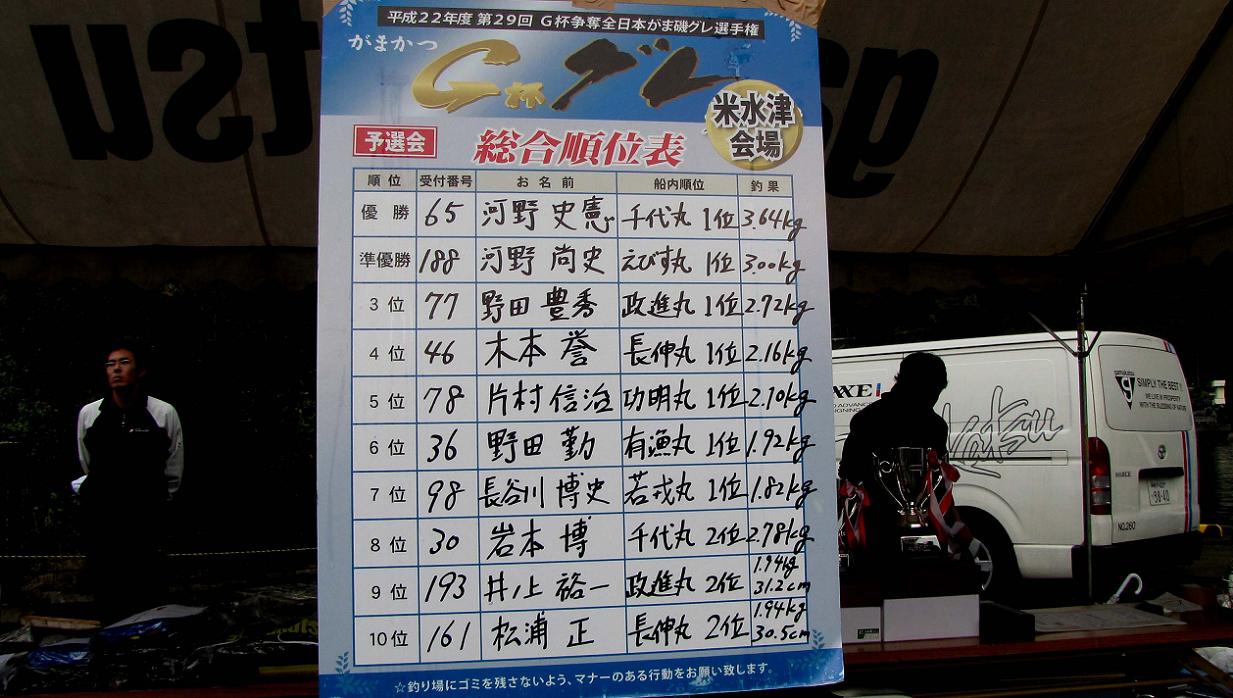 平成22年度 第29回 G杯争奪全日本がま磯グレ選手権
がまかつ
G杯グレ
米水津
会場
予選会 総合順位表
順位 受付番号 お名前 船内順位 釣果
優勝 65 河野 史憲 千代丸 1位 3.64kg
準優勝 188 河野 尚史 えびす丸 1位 3.00kg
3位 77 野田 豊秀 政進丸 1位 2.72kg
4位 46 木本 誉 長伸丸 1位 2.16kg
5位 78 片村 信治 功明丸 1位 2.10kg
6位 36 野田 勤 有漁丸 1位 1.92kg
7位 98 長谷川 博史 若戎丸 1位 1.82kg
8位 30 岩本 博 千代丸 2位 2.78kg
9位 193 井ノ上 裕一 政進丸 2位 1.94kg 31.2cm
10位 161 松浦 正 長伸丸 2位 1.94kg 30.5cm
☆釣り場にゴミを残さないよう、マナーのある行動をお願い致します。
SIMPLY THE BEST!
WE LIVE IN PROSPERITY
WITH THE BLESSING OF NATURE
NO.260